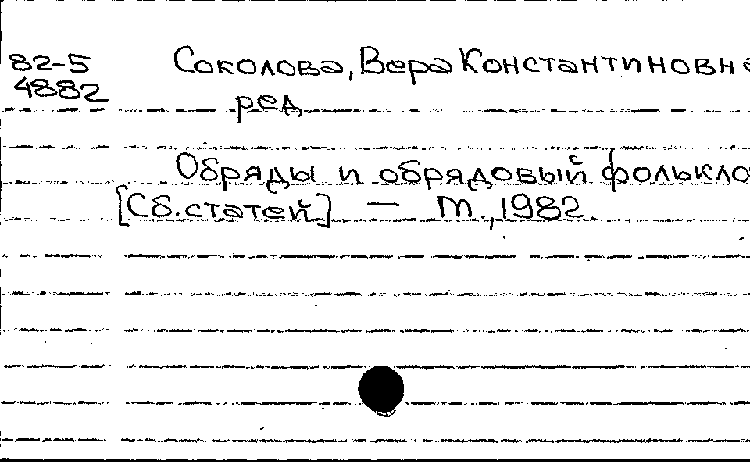 82-5 Соколова, Вера Константиновн
4882
ред
Обряды и обрядовый фолькло
[Сб. статей] — М., 1982.